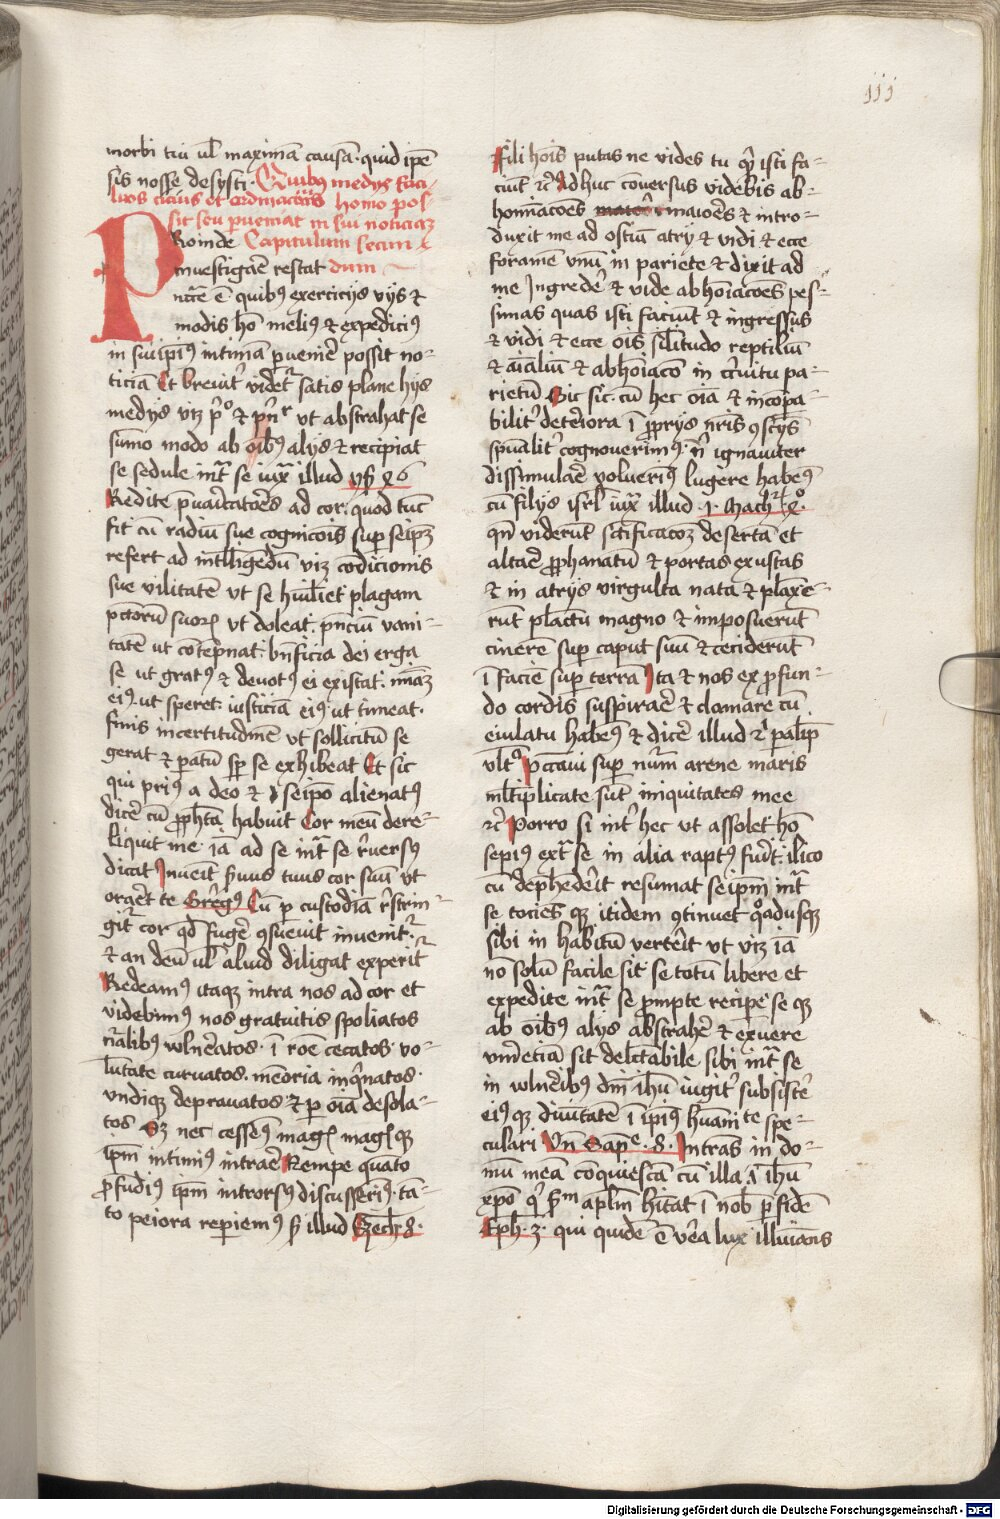 iii
morbi tui ul̄ maximā causā · quid ip̄e
sis nosse desysti · Quibus medys faci-
lius cicius et ordinacoīs homo pos-
sit seu pueniat in sui noticiaz
Roinde Capitulum secun
inuestigāe restat dum
nr̄e ē quibꝰ exercicijs vijs ⁊
modis hō meliꝰ ⁊ expediciꝰ
in sui ip̄iꝰ intimā pueniē possit no-
ticiā Et breuit̄ videt̄ satis plane hijs
medijs viz pº ⁊ pn̄r ut abstrahat se
sūmo modo ab oībꝰ alijs ⁊ recipiat
se sedule int̄ se iux̄ illud ys̄ 46
Redite p̄uaricatoēs ad cor · quod tūc
fit cū radiū sue cognicōis sup seipz
refert ad intlligendū viz cōdicionis
sue vilitatē ut se huīliet plagam
pctorū suoꝝ ut doleat · pn̄ciū vani-
tatē ut cōtēpnat · bn̄ficia dei erga
se ut gratꝰ ⁊ deuotꝰ ei existat · mīaz
eiꝰ ut speret · iusticiā eiꝰ ut timeat ·
finis incertitudinē ut sollicitū se
gerat ⁊ patū sp̄ se exhibeat Et sic
qui priꝰ a deo ⁊ seipō alienatꝰ
dicē cū pph̄ta habuit Cor meū dere-
liquit me · iā ad se int̄ se r̄uersꝰ
dicat Inueīt s̄uus tuus cor suū ut
oret te Gregꝰ Cū p custodiā r̄strin-
git̄ cor qd̄ fugē ꝯsueuit inuenit̄
⁊ an deū ul̄ aliud diligat experit̄
Redeamꝰ itaqꝫ intra nos ad cor et
videbimꝰ nos gratuitis spoliatos
nāalibꝰ vlnēatos · ī roē cecatos vo-
lūtate curuatos · mēoria inqnatos ·
undiqꝫ deprauatos ⁊ p oīa desola-
tos Sz nec cessēꝰ magꝭ magꝭqꝫ
ip̄m intimiꝰ intraē Nempe quāto
pfudiꝰ ip̄m introrsꝰ discusserīꝰ · tā-
to peiora reperiemꝰ s̄ illud Ezech̄ 8 ·
Fili hoīs putas ne vides tu q̄ isti fa-
ciūt ⁊c̄ Adhuc cōuersus videbis ab-
homīacōes maioēs ⁊ intro-
duxit me ad ostiū atrij ⁊ vidi ⁊ ecce
foramē vnū in pariete ⁊ dixit ad
me Ingredē ⁊ vide abhoīacōes pes-
simas quas isti faciūt ⁊ ingressus
⁊ vidi ⁊ ecce oīs sīlitudo reptiliū
⁊ aīaliū ⁊ abhoīaco in cr̄uitu pa-
rietū Sic sic · cū hec oīa ⁊ incōpa-
bilit̄ deteriora ī pprijs nr̄is ꝯscijs
spūalit̄ cognouerimꝰ n̄ ignauiter
dissimulaē voluerīꝰ lugere habēꝰ
cū filijs isrl̄ iux̄ illud · 1 · Mach 4º ·
qn̄ viderūt scīficacōz desertā et
altaē pphanatū ⁊ portas exustas
⁊ in atrijs virgulta nata ⁊ plāxe-
rūt plāctu magno ⁊ imposuerūt
cinerē sup caput suū ⁊ ceciderūt
ī faciē sup terrā Ita ⁊ nos ex pfun-
do cordis suspiraē ⁊ clamare cū
eiulatu habēꝰ ⁊ dicē illud 2 palip̄
vltº Pccaui sup nūm arene maris
ml̄tiplicate sūt iniquitates mee
⁊c̄ Porro si int̄ hec ut assolet hō
sepiꝰ ext̄ se in alia raptꝰ fūit · ilico
cū dephēderit resumat seipm̄ int̄
se tociēs qꝫ itidem ꝯtinuet qºadusqꝫ
sibi in habitū verterit ut viz iā
nō solū facile sit se totū libere et
expedite int̄ se prompte recipe se qꝫ
ab oībꝰ alijs abstrahē ⁊ exuere
vn̄eciā sit delctabile sibi int̄ se
in vlnēibꝰ dn̄i ih̄u iugit̄ subsistē
eiꝰqꝫ diuītatē ī ip̄iꝰ huāni te spe-
culari Vn̄ Sapē · 8 · Intrās in do-
mū meā cōquiescā cū illa ī ih̄u
xp̄o q̄ s̄m apl̄m h̄itat ī nob̄ p fidē
Eph̄ · 3 · qui quidē ē vēa lux illuīans
Digitalisierung gefördert durch die Deutsche Forschungsgemeinschaft - DFG